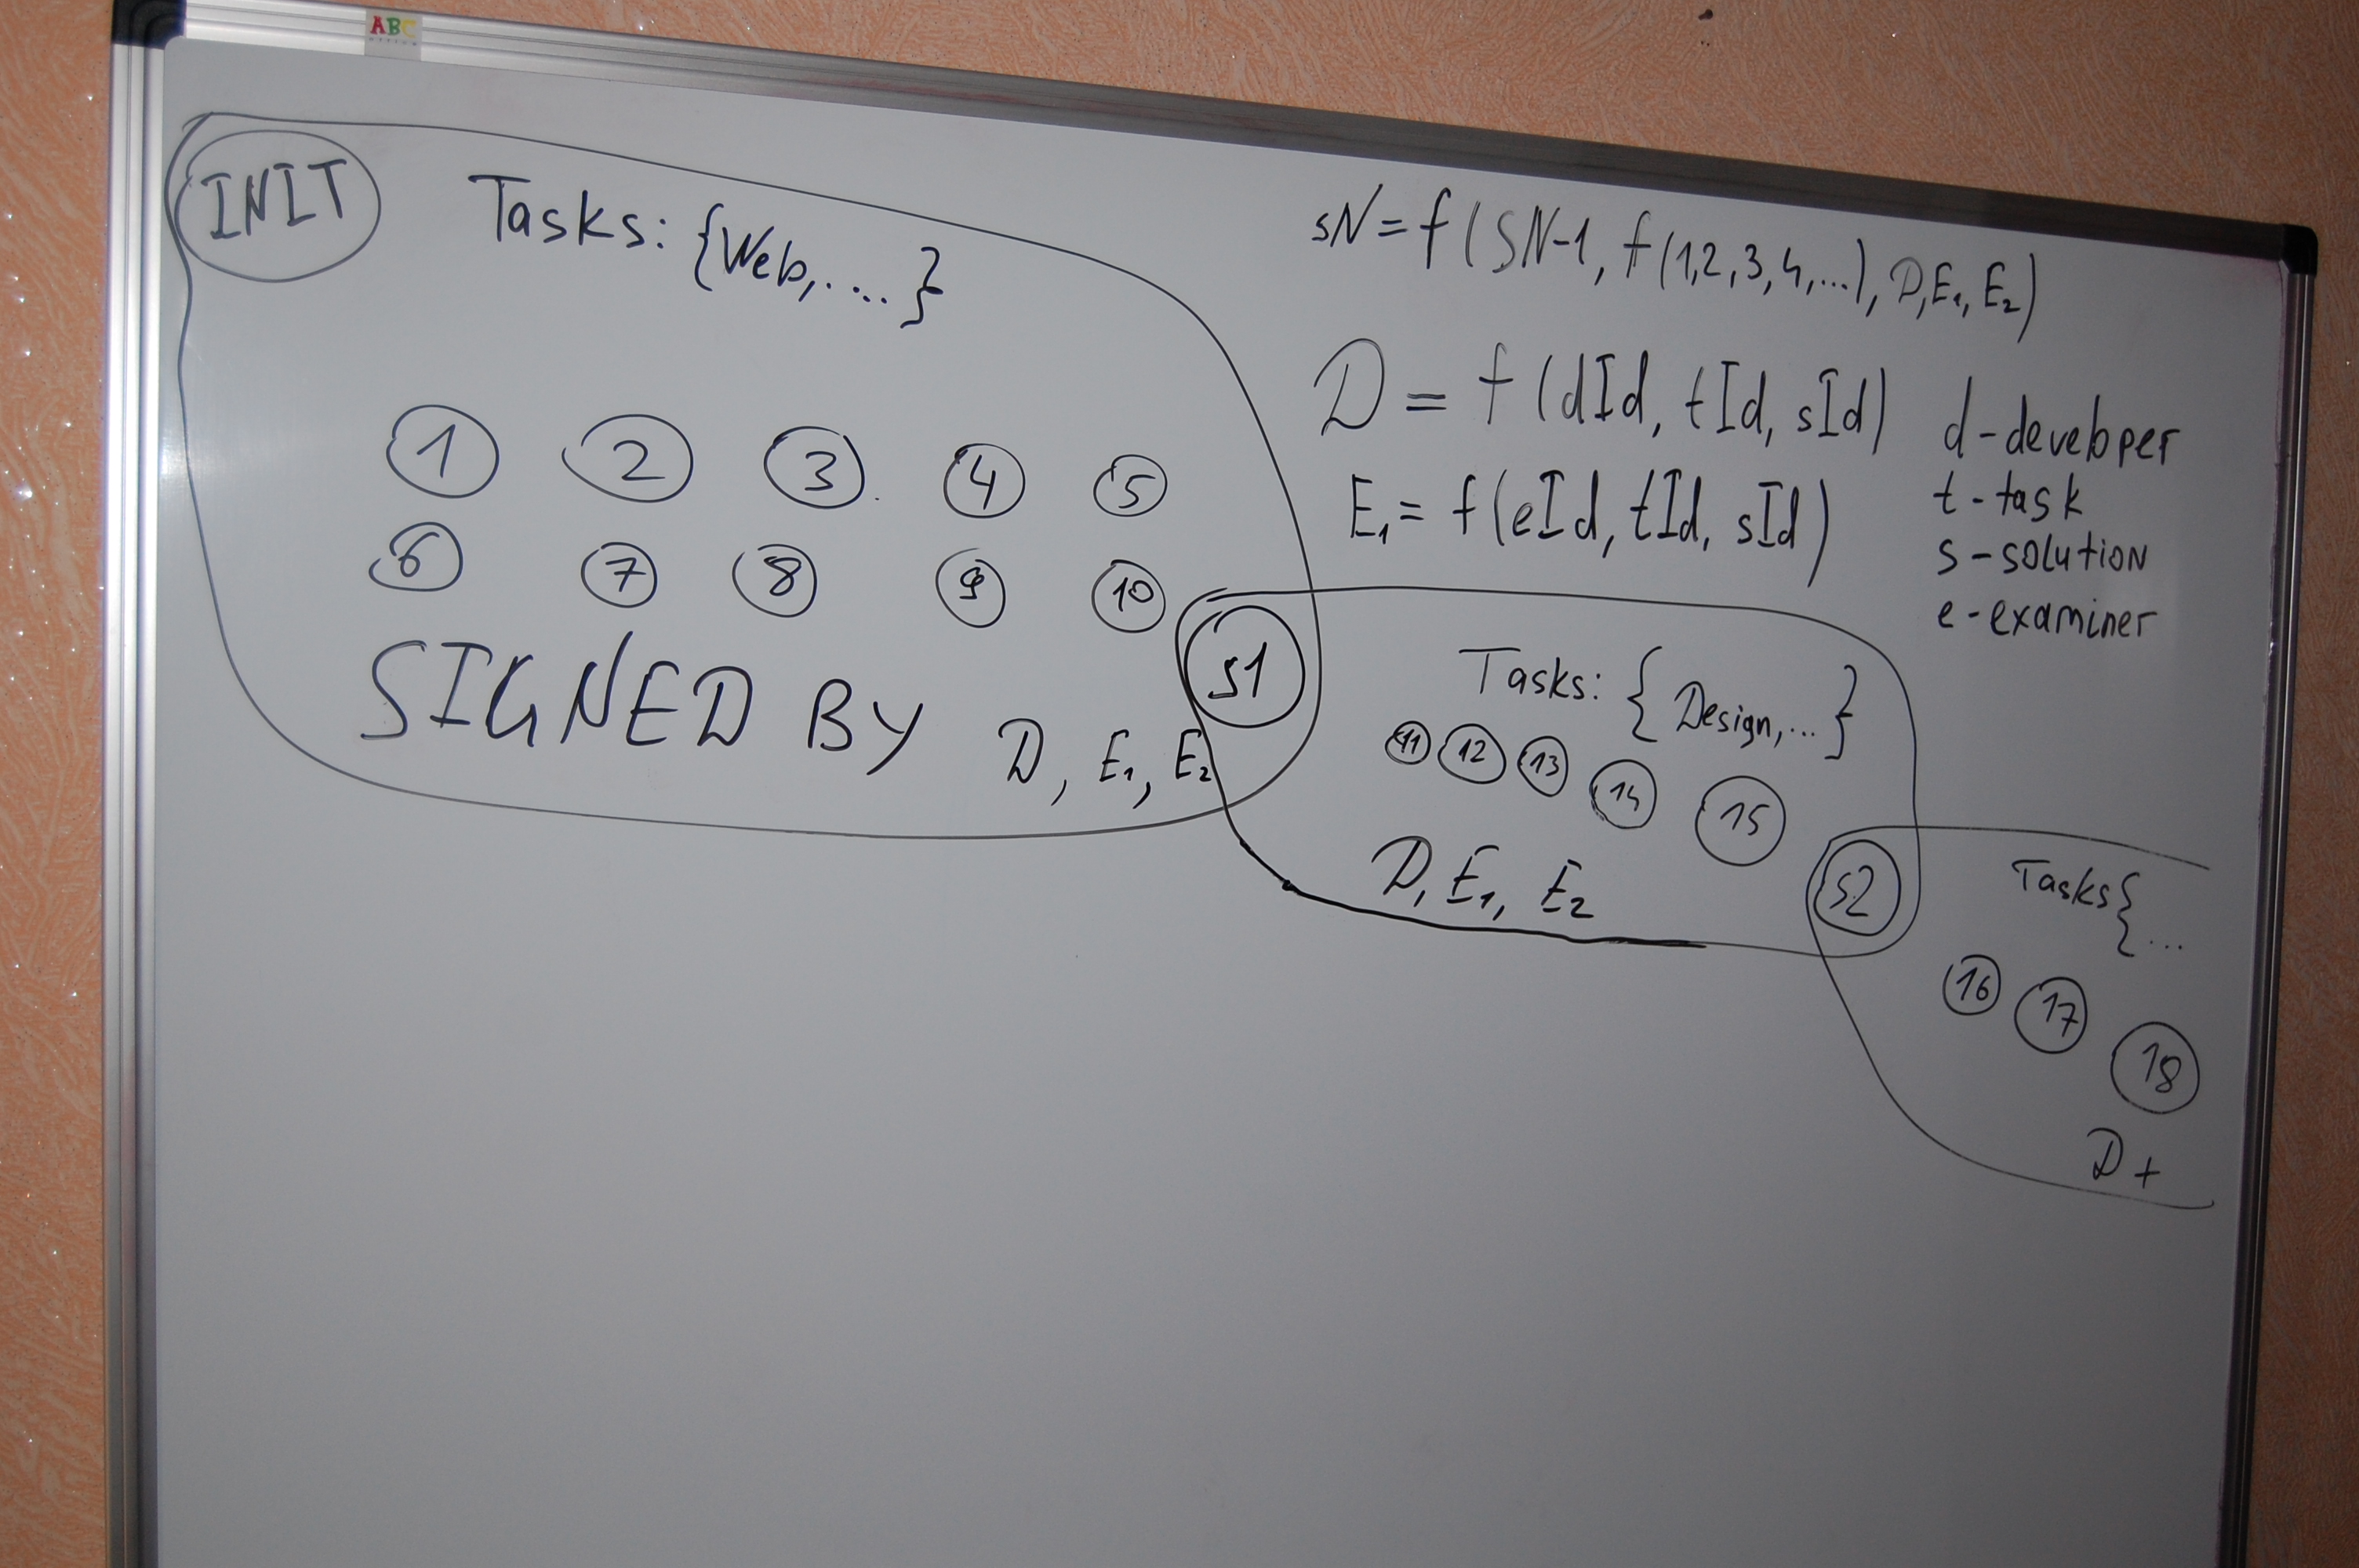 ABC
INIT
Tasks: {Web, .... }
1 2 3 4 5
6 7 8 9 10
SIGNED BY D, E₁, E₂
sN = f(SN-1, f(1,2,3,4,...), D,E₁, E₂)
D = f(dId, tId, sId)
E₁ = f(eId, tId, sId)
d - developer
t - task
s - solution
e - examiner
s1
Tasks: { Design, ... }
11 12 13 14 15
D, E₁, E₂
s2
Tasks{ ...
16 17 18
D +